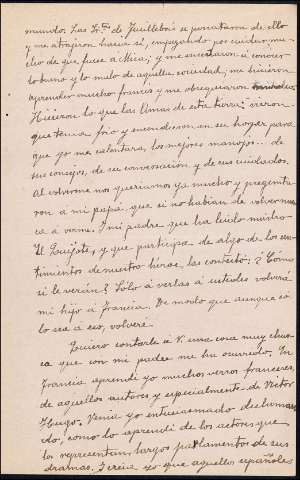 mundo. Las Sras de Juillebois se percataron de ello
y me atrajeron hacia sí, empezando por cuidar
de que fuese a Misa; y me enseñaron a conocer
lo bueno y lo malo de aquella sociedad, me hicieron
aprender mucho francés y me obsequiaron
Hicieron lo que las Damas de esta tierra: vieron
que tenía frío y encendieron en su hogar para
que yo me calentara, los mejores manojos... de
sus consejos, de su conversación y de sus cuidados.
Al volverme nos queríamos ya mucho y pregunta-
ron a mi papá que si no habían de volver nun-
ca a verme. Y mi padre que ha leído mucho
El Quijote, y que participa de algo de los sen-
timientos de nuestro héroe, las contestó: ¿Cómo
si le verán? Sólo a verlas a ustedes volverá
mi hijo a Francia. De modo que aunque só-
lo sea a eso, volveré.
Quiero contarle a V. una cosa muy chus-
ca que con mi padre me ha ocurrido. En
Francia aprendí yo muchos versos franceses,
de aquellos autores y especialmente de Victor
Hugo. Venía yo entusiasmado declaman-
do, como lo aprendí de los actores que
los representan, largos parlamentos de sus
dramas. Creía yo que aquellos españoles